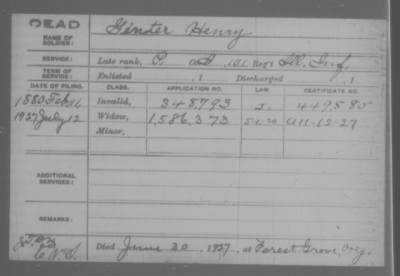 DEAD
NAME OF SOLDIER: Ginter Henry
SERVICE: Late rank, P. Co. 101 Reg't Ill. Inf.
TERM OF SERVICE: Enlisted , 1 Discharged , 1
DATE OF FILING. CLASS. APPLICATION NO. LAW. CERTIFICATE NO.
1880 Feb 16 Invalid, 348,793 449,585
1927 July 12 Widow, 1,586,373 5-1-20 A11-12-27
Minor,
ADDITIONAL SERVICES:
REMARKS:
Died June 20, 1927, at Forest Grove, Oreg.